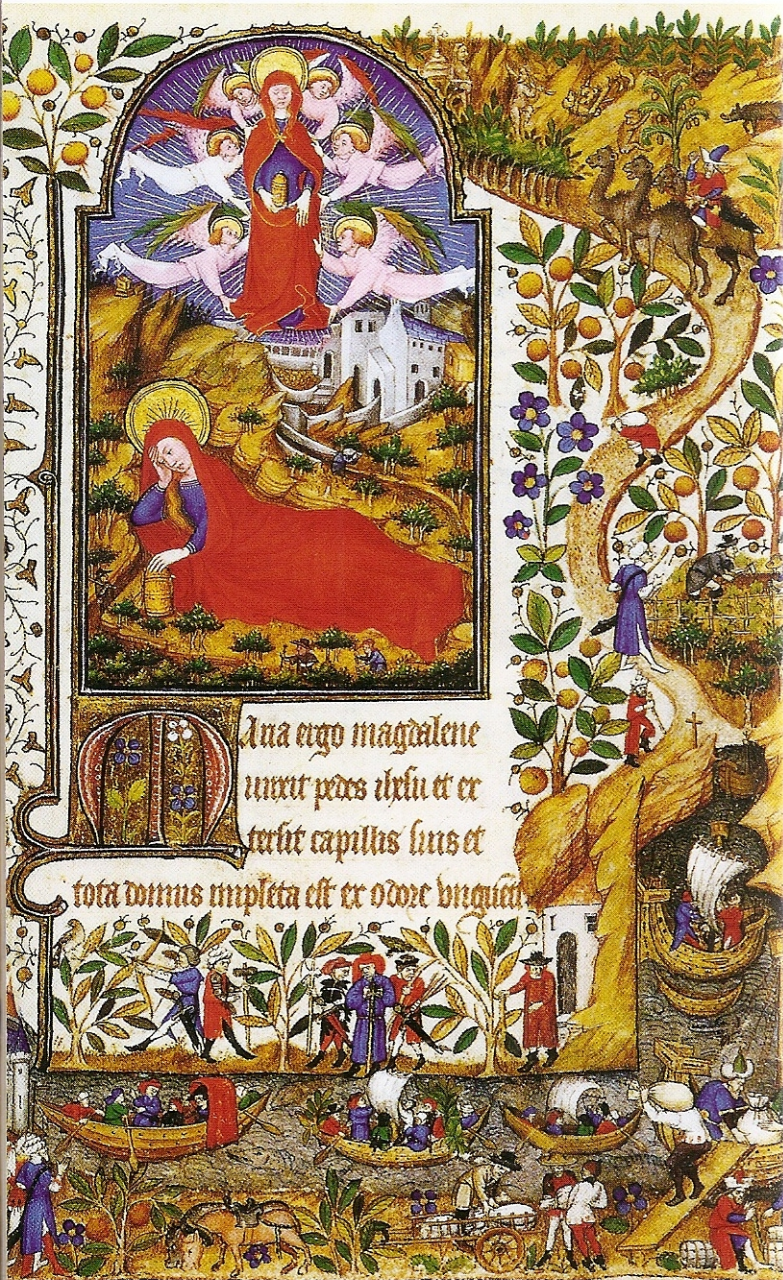 Maria ergo magdalene
unxit pedes ihesu et ex
tersit capillis suis et
tota domus impleta est ex odore vngueti